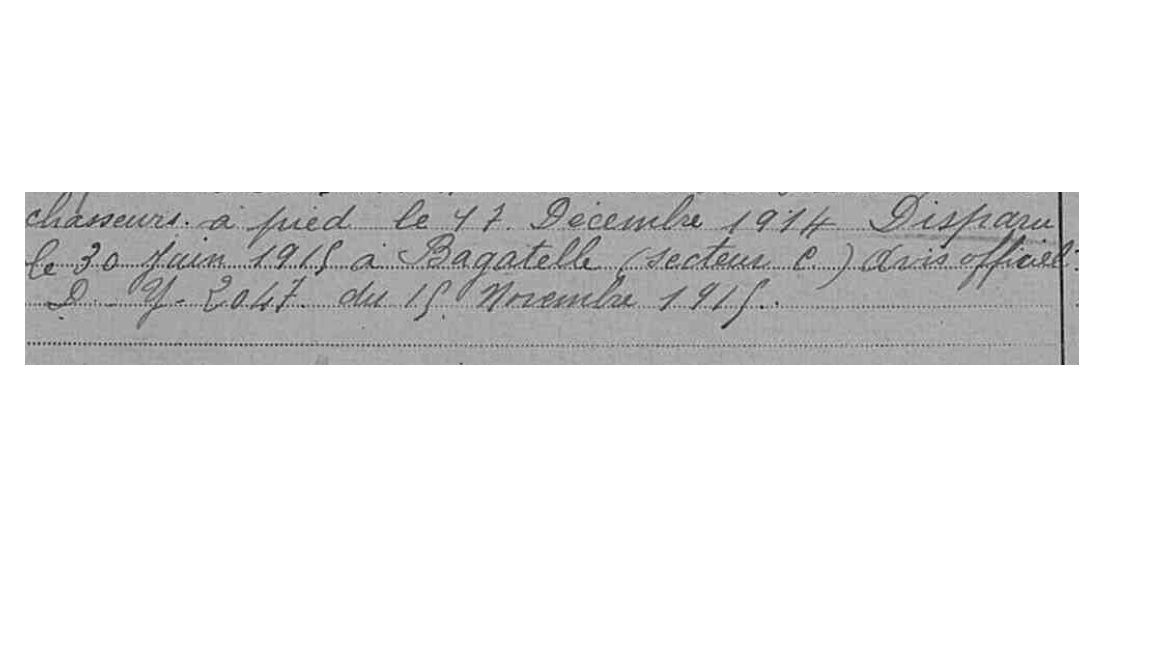 chasseurs. à pied le 17. Décembre 1914 Disparu
le 30 Juin 1915 à Bagatelle (secteur C.) avis officiel
D. Y. 2047. du 15 Novembre 1915.